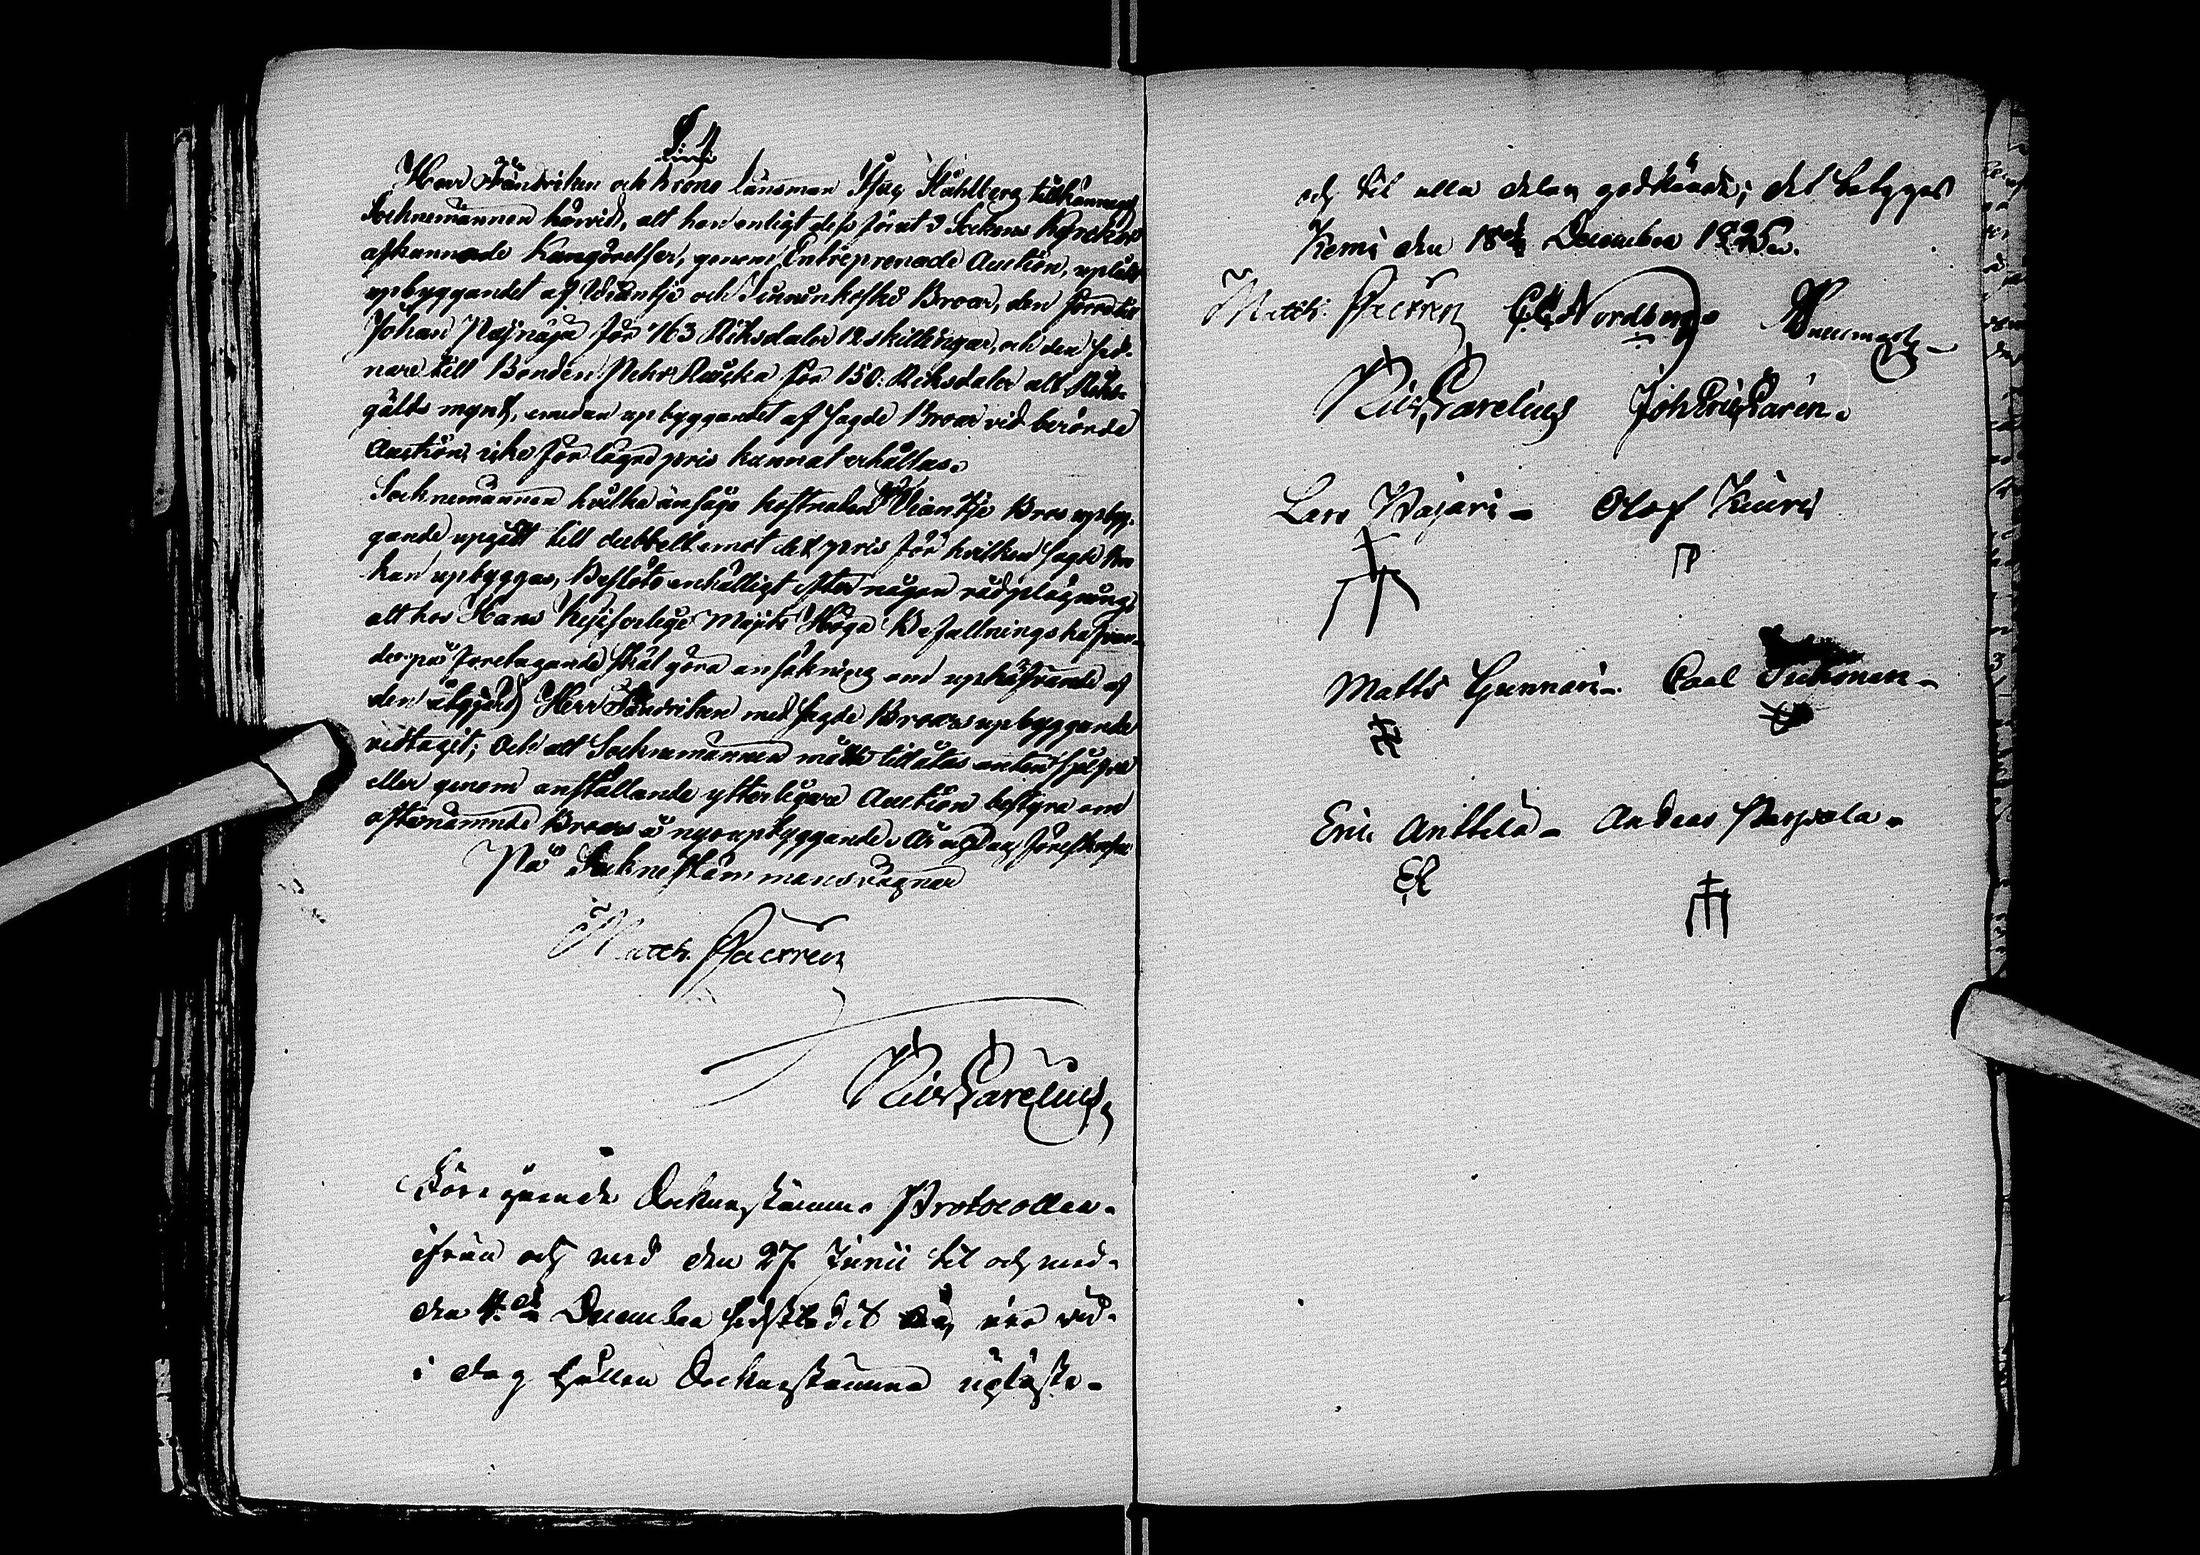 § 4
Herr Fändriken och Krono länsman Isac Ståhlberg tillkännagaf
Socknemännen härvid, att han enligt dess förut i Sockens Kyrckor
afkunnade Kungörelser, genom Entreprenade Auction, uplåtit
upbyggandet af Viantje och Juurunkoski Broar, den förra till
Johan Pajnaja för 163 Riksdaler 12 skillingar, och den sed-
nare till Bonden Pehr Rauska för 150: Riksdaler alt Riks-
gälds mynt, emedan upbyggandet af sagde Broar vid berörde
Auction icke för lägre pris kunnat erhållas.
Socknemännen hvilka ansågo kostnaden för Viantje Bros upbyg-
gande upgått till dubbelt emot det pris för hvilken sagde Bro
kan upbyggas, Beslöto enhälligt efter någon rådplägning
att hos Hans Kejserliga Majsts Höga Befallningshafvan-
de på företagande skäl göra ansökning om uphäfvande af
den åtgjerd Herr Fändriken med sagde Broars upbyggande
vidtagit; och att Socknemännen måtte tillåtas antend sjelfva
eller genom anställande ytterligare Auction bestyra om
oftanämnde Broars å nyo upbyggande. År och Dag föreskrefne
På Sockne stämmans vägnar
Matth. Pacxren
Nils Carelius
Föregående Sockenstämmo Protocoller
ifrån och med den 27 Junii til och med
den 4de December sedstledit är, uro vid
i dag hållen Sockenstämma upläste
och til alla delar godkände; det betygas
Kemi den 18de December 1825.
Matth. Pacxren C. E. Nordberg
Nils Carelius Joh Eric Carén
Lars Vajari Olof Kiuri
Matts Gunnari Carl Tickonen
Eric Anttila Anders Parpala